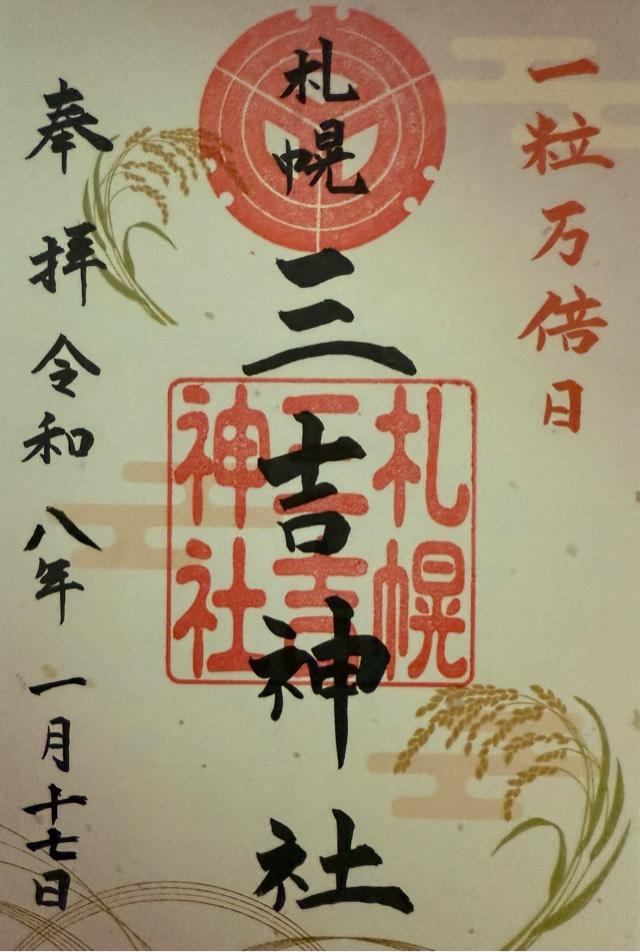 一粒万倍日
札幌
三吉神社
札幌
三吉
神社
奉拝 令和八年 一月十七日